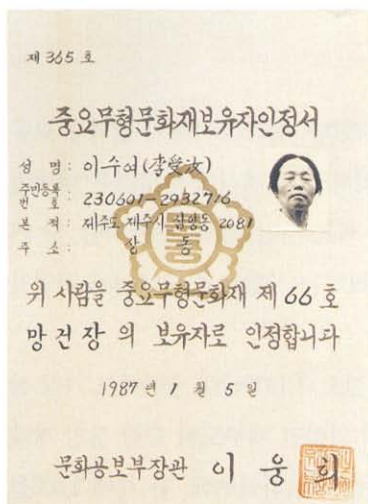 제 365 호
중요무형문화재보유자인정서
성 명 : 이수여(李受汝)
주민등록번호 : 230601-2932716
본 적 : 제주도 제주시 삼양동 2081
주 소 : 상 동
위 사람을 중요무형문화재 제 66 호
망건장 의 보유자로 인정합니다
1987 년 1 월 5 일
문화공보부장관 이 웅 희